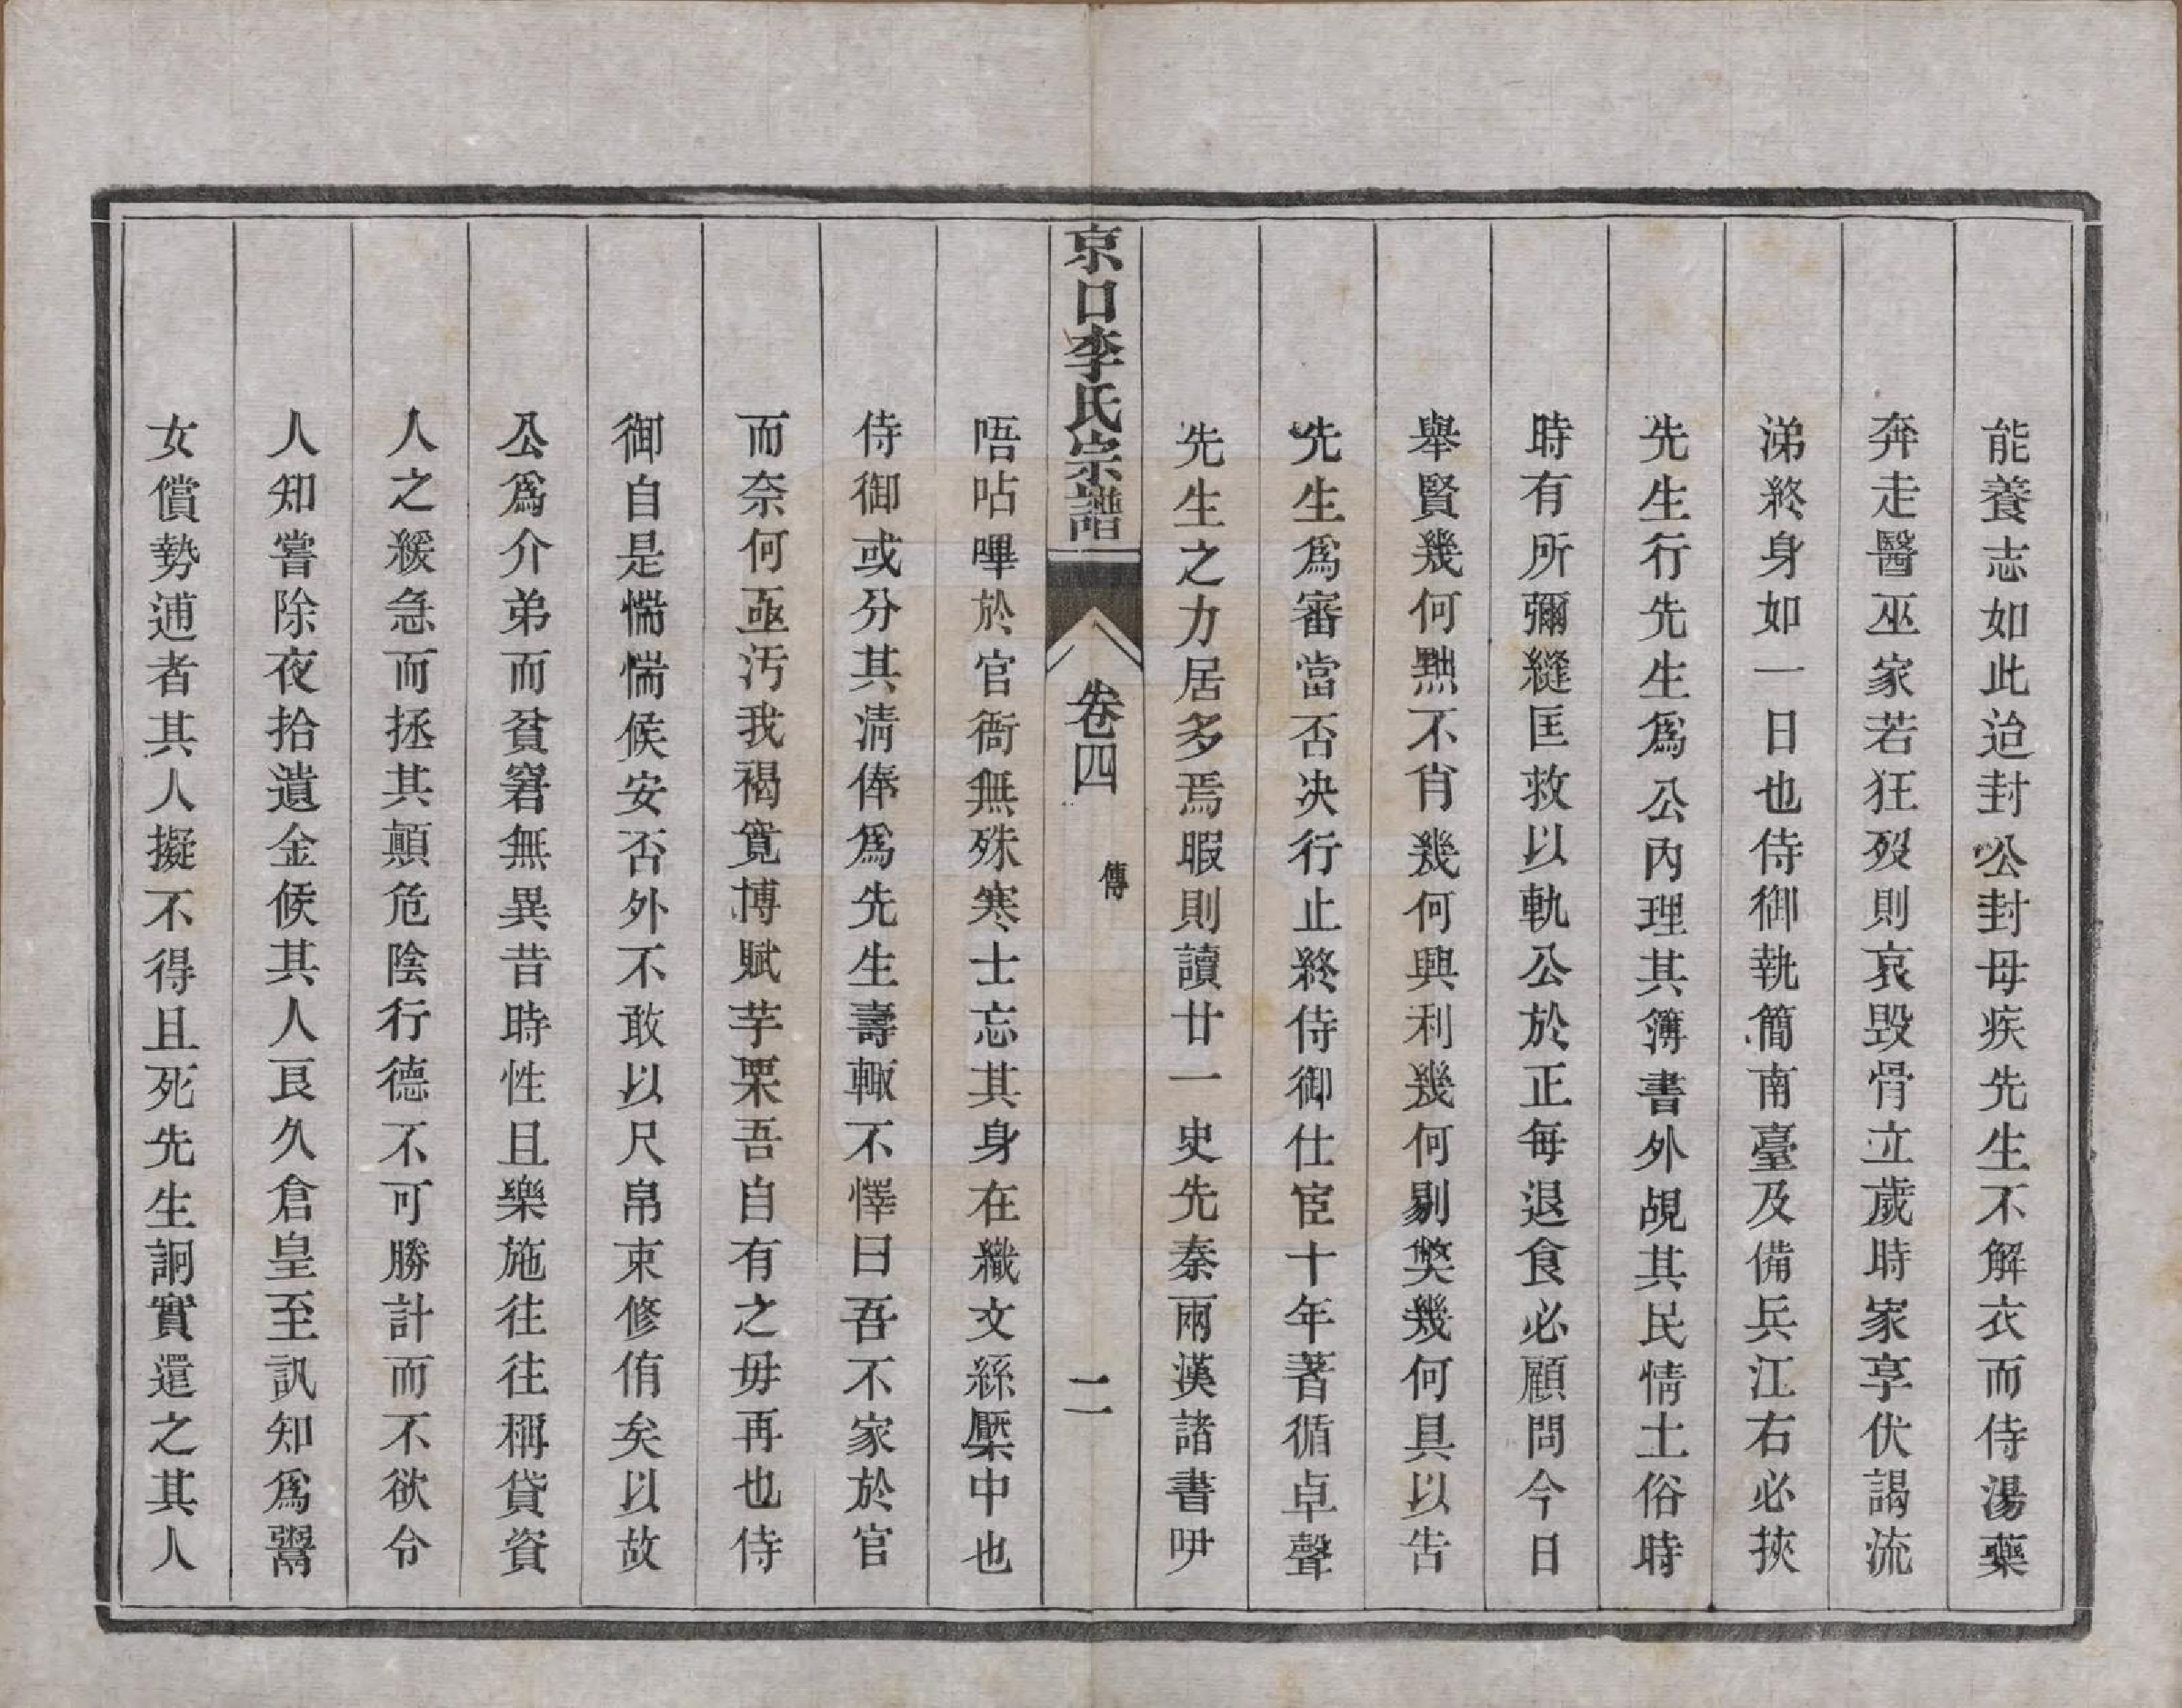 能養志如此迨封公封母疾先生不解衣而侍湯藥
奔走醫巫家若狂歿則哀毀骨立歲時家享伏謁流
涕終身如一日也侍御執簡南臺及備兵江右必挾
先生行先生爲公內理其簿書外覘其民情土俗時
時有所彌縫匡救以軌公於正每退食必顧問今日
舉賢幾何黜不肖幾何興利幾何剔獘幾何具以告
先生爲審當否決行止終侍御仕宦十年著循卓聲
先生之力居多焉暇則讀廿一史先秦兩漢諸書吚
京口李氏宗譜
卷四
傳
二
唔呫嗶於官衙無殊寒士忘其身在織文絲檿中也
侍御或分其淸俸爲先生壽輙不懌曰吾不家於官
而奈何亟汚我褐寛博賦芧栗吾自有之毋再也侍
御自是惴惴候安否外不敢以尺帛束修侑矣以故
公爲介弟而貧窘無異昔時性且樂施往往稱貸資
人之緩急而拯其顚危陰行德不可勝計而不欲令
人知嘗除夜拾遺金候其人良久倉皇至訊知爲鬻
女償勢逋者其人擬不得且死先生詗實還之其人